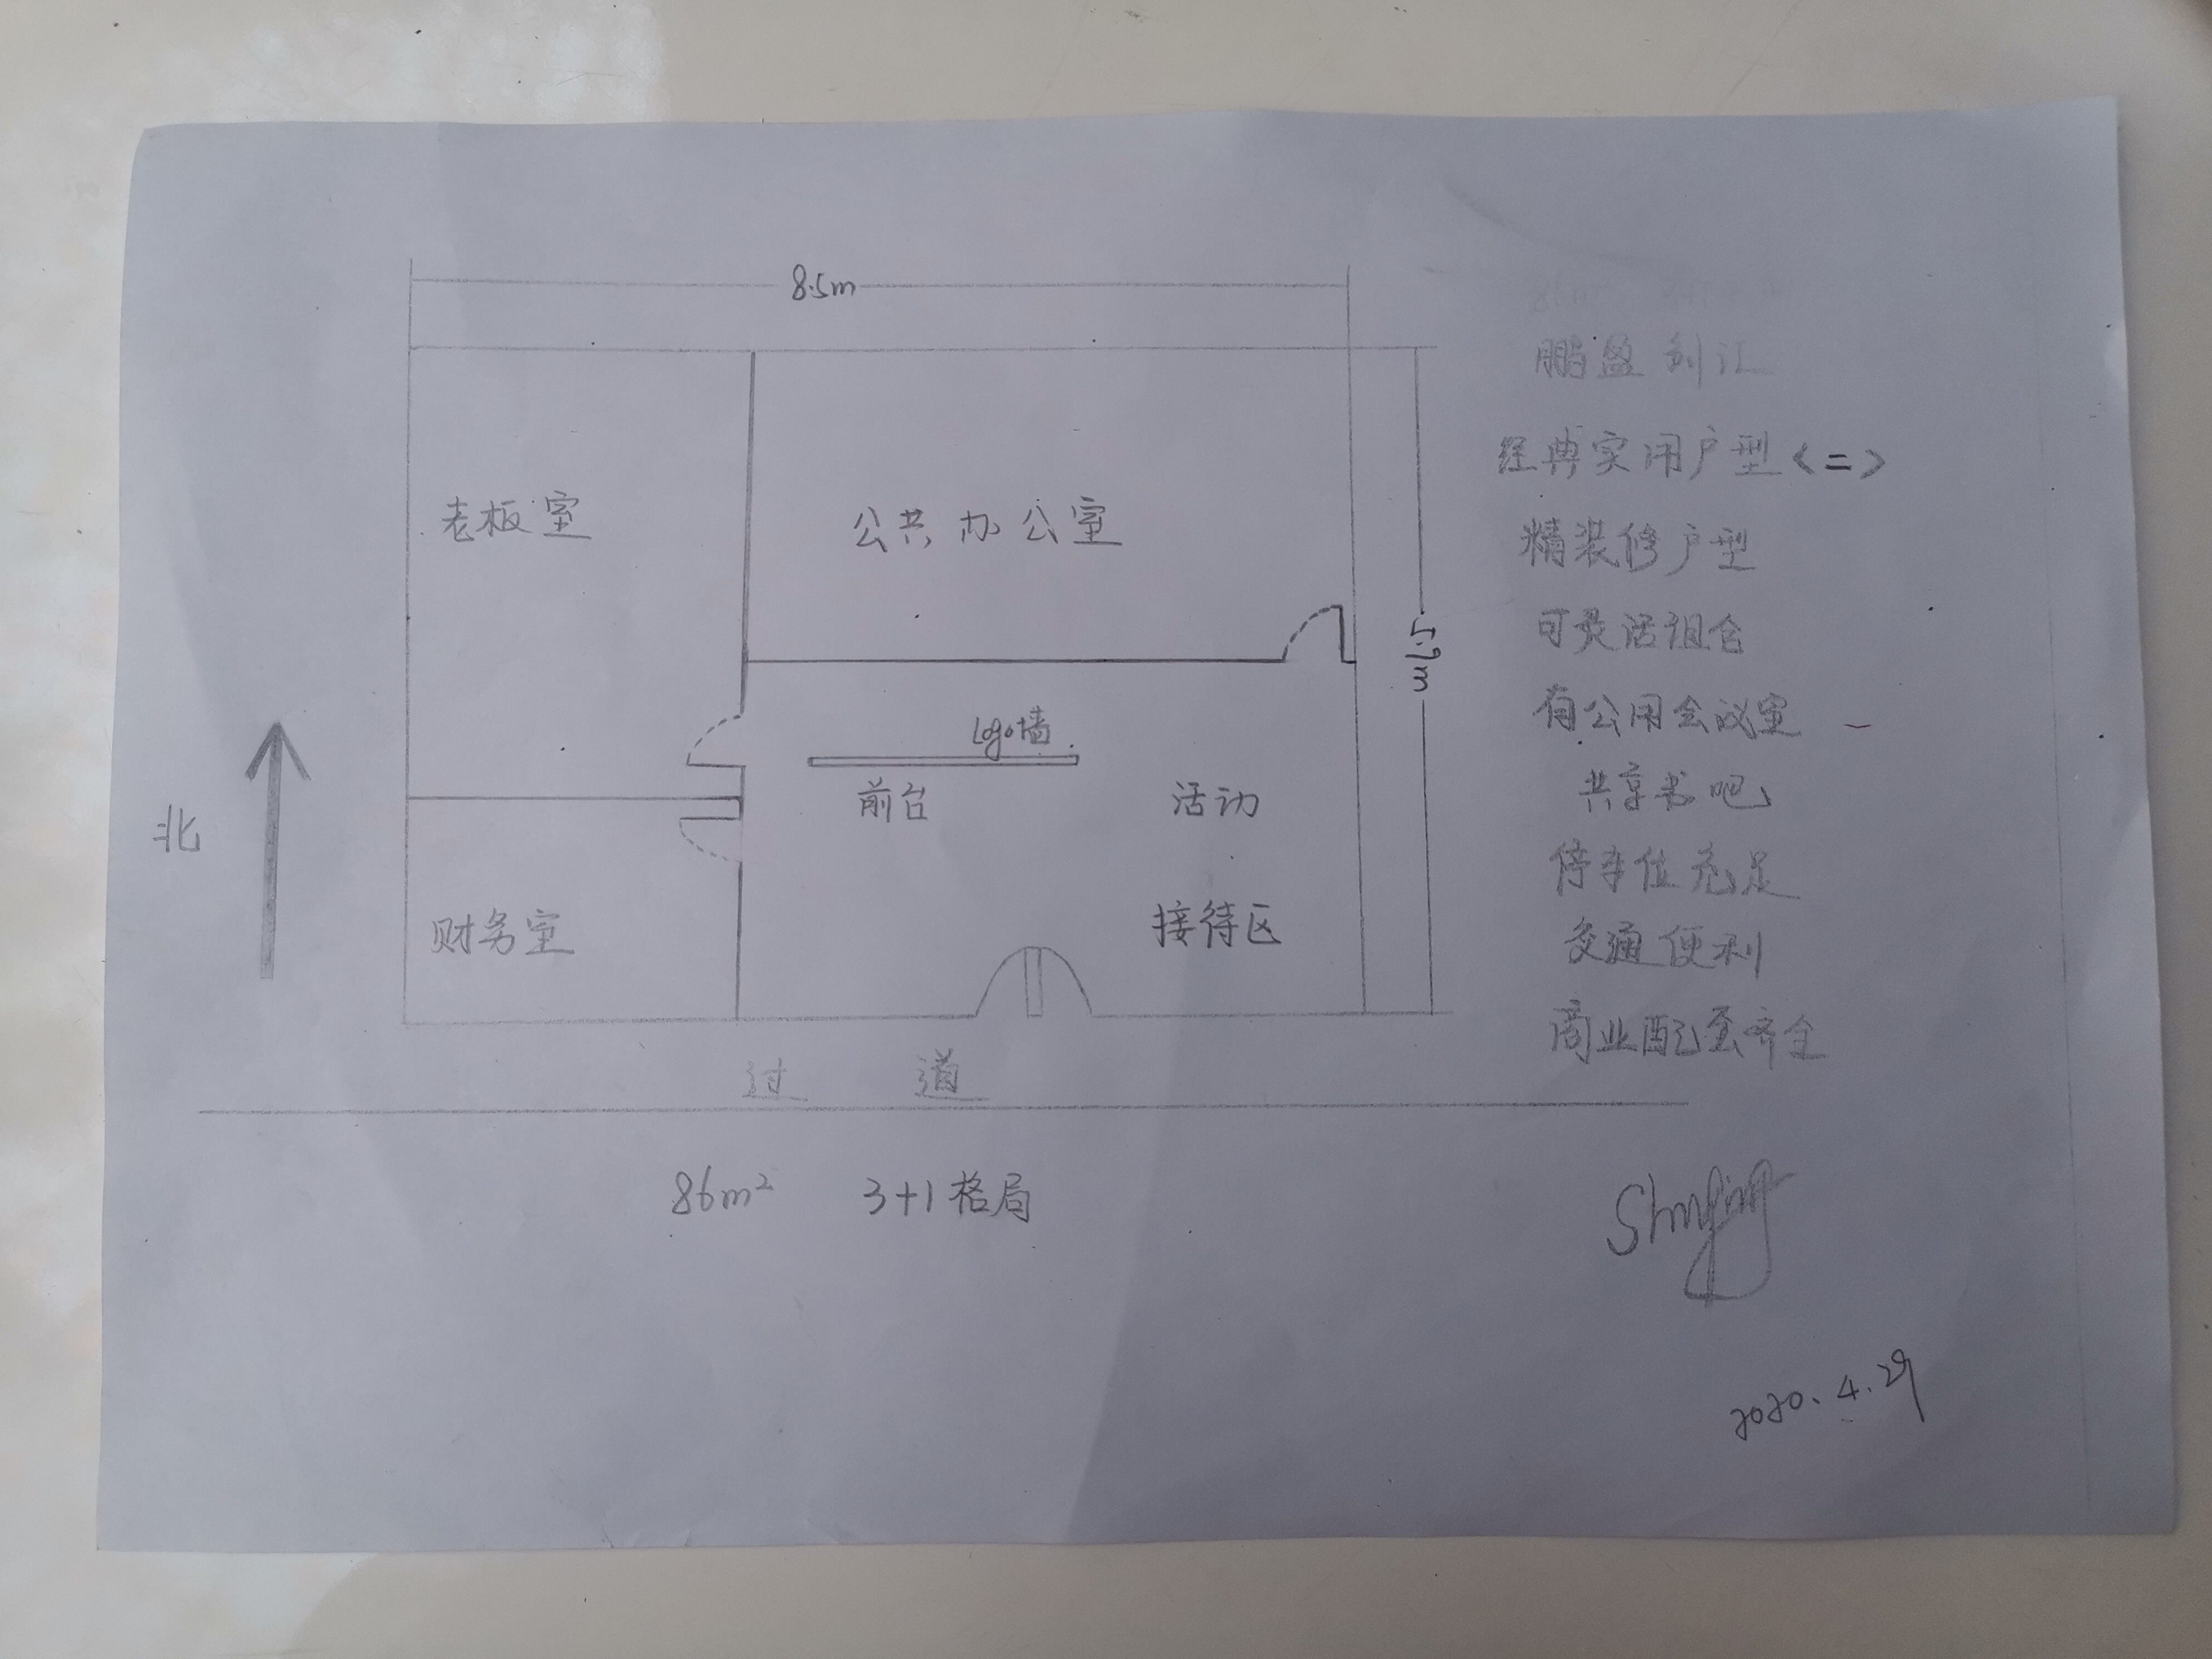 8.5m
鹏盈创汇
经典实用户型<二>
老板室
公共办公室
精装修户型
可灵活组合
5.9m
有公用会议室
Logo墙
前台
活动
共享书吧
北
停车位充足
财务室
接待区
交通便利
商业配套齐全
过道
86m² 3+1格局
2020.4.29